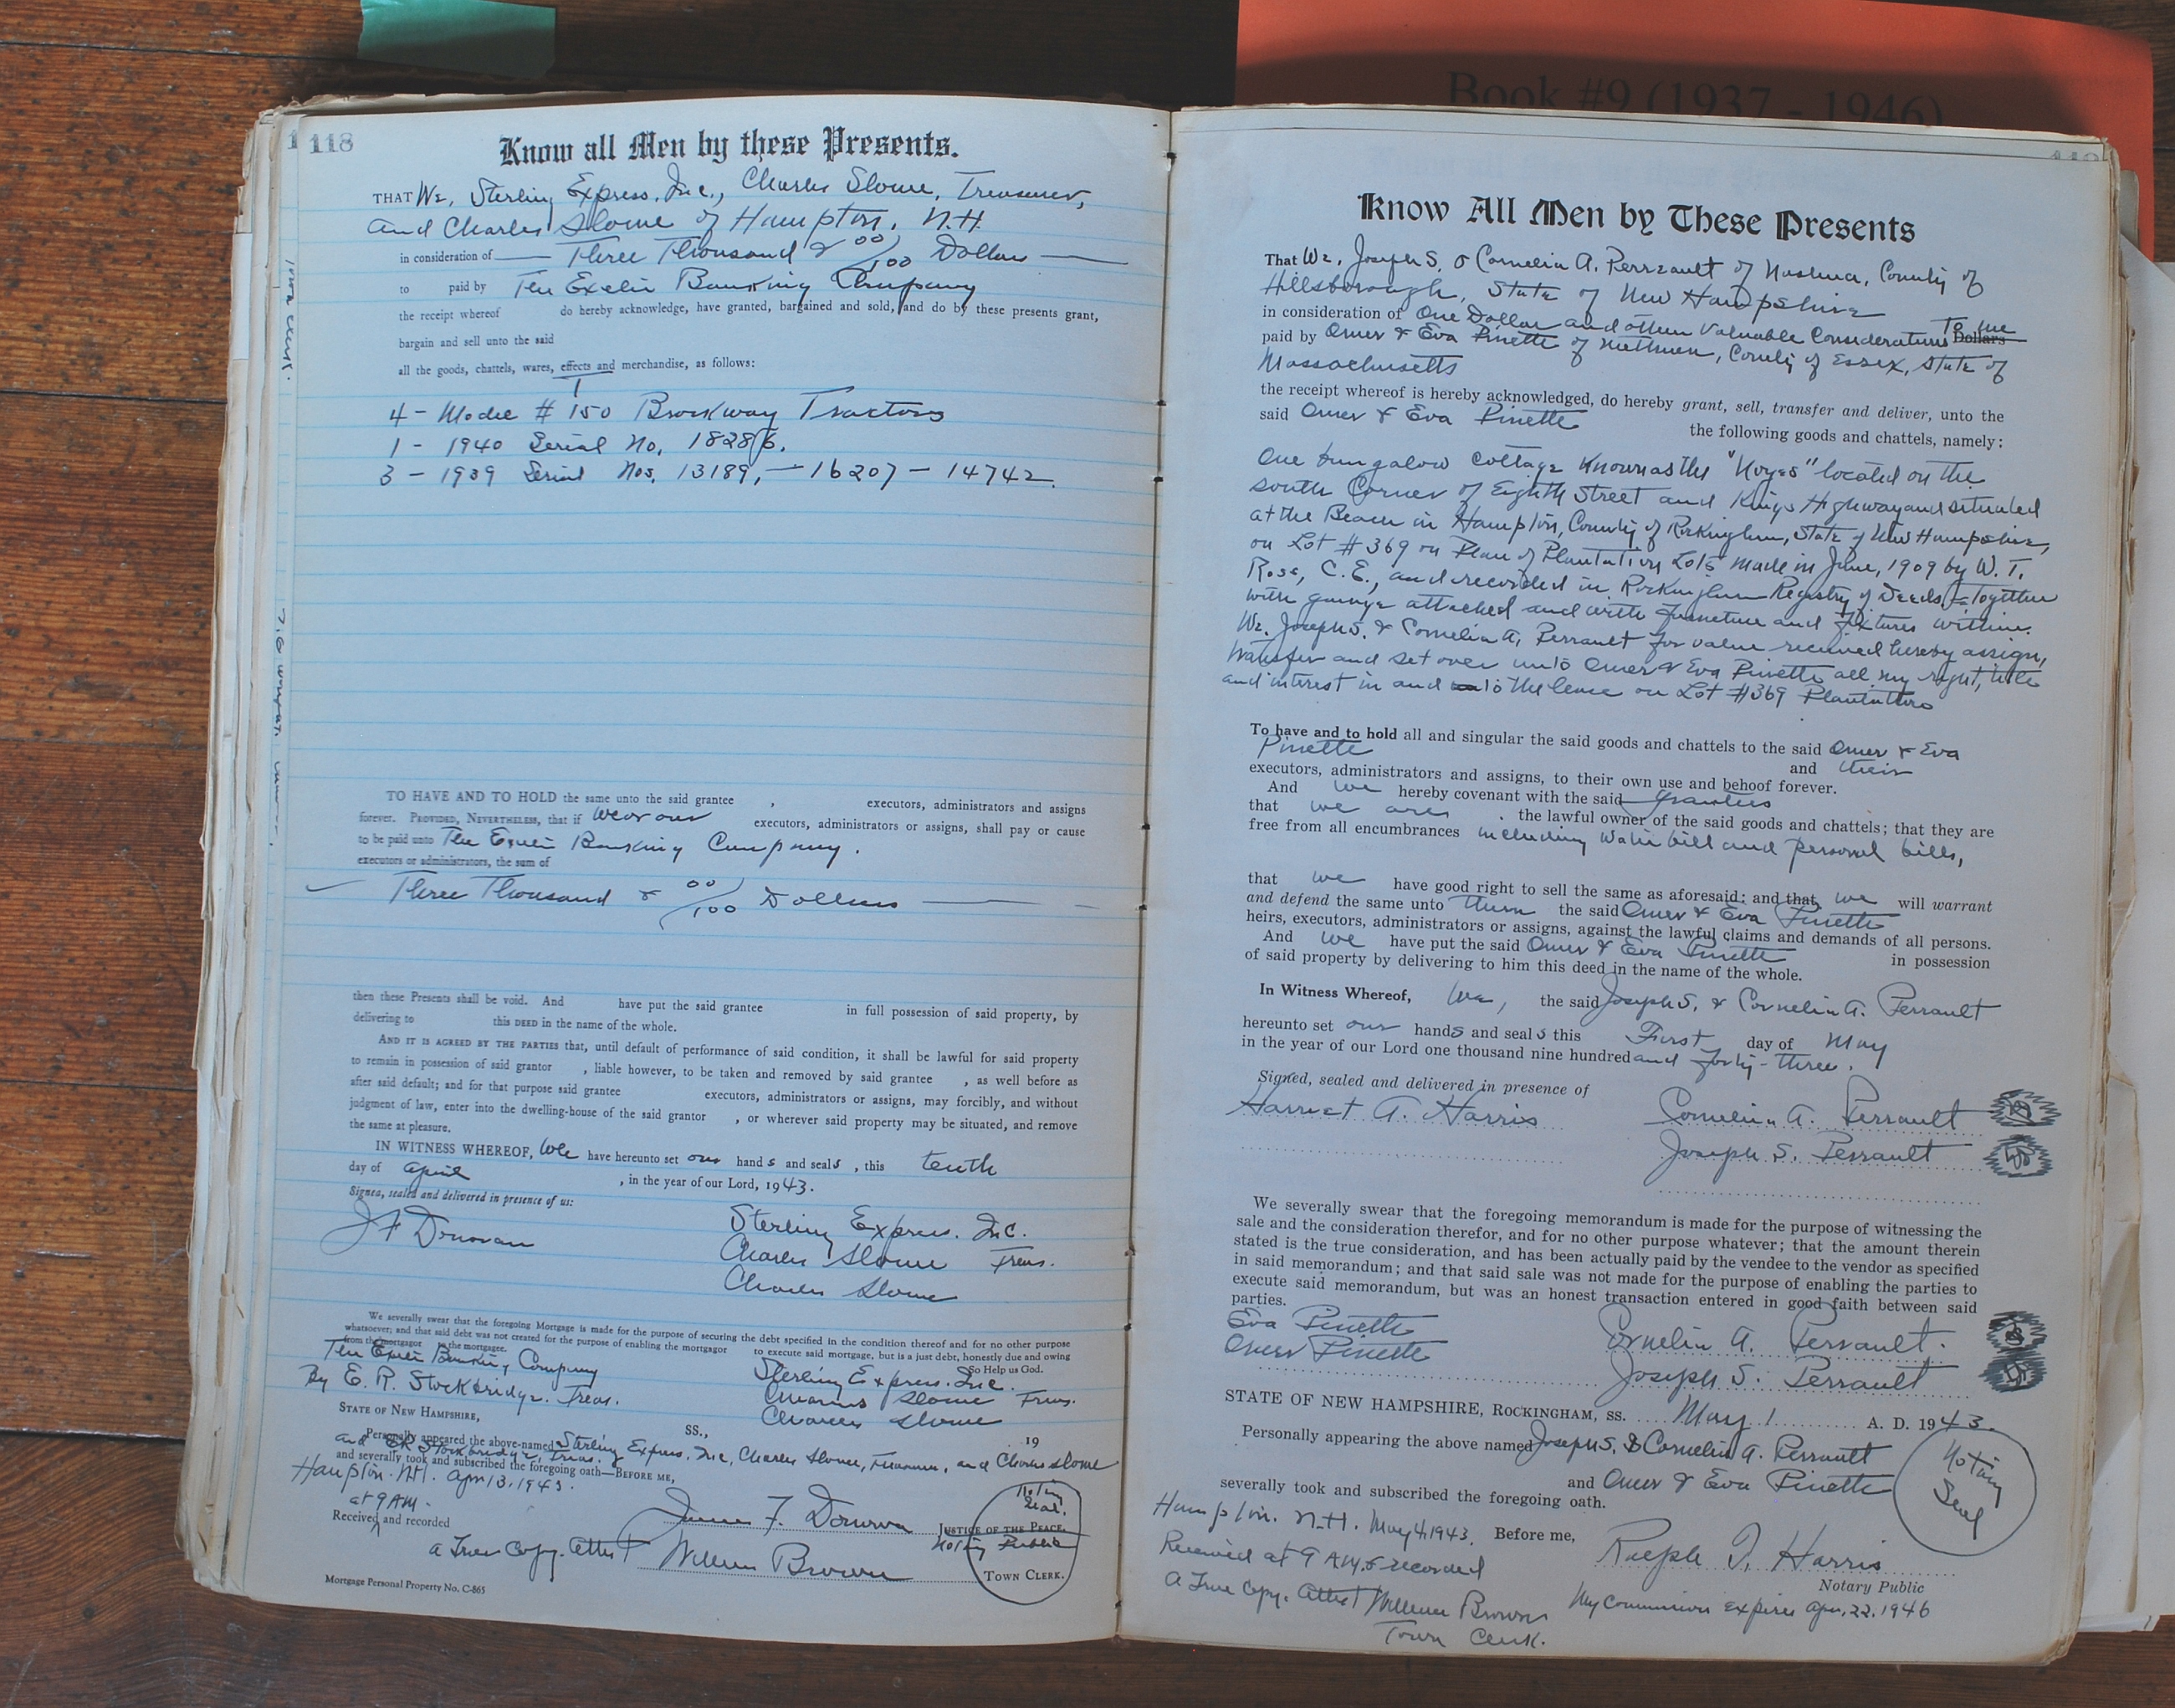 Book #9 (1937 - 1946)
118
Know all Men by these Presents.
THAT We, Sterling Express, Inc., Charles Slowe, Treasurer,
and Charles Slowe of Hampton, N.H.
in consideration of Three Thousand & 00/100 Dollars
to paid by The Exeter Banking Company
the receipt whereof do hereby acknowledge, have granted, bargained and sold, and do by these presents grant,
bargain and sell unto the said
all the goods, chattels, wares, effects and merchandise, as follows:
4 - Model # 150 Brockway Tractors
1 - 1940 Serial No. 18286.
3 - 1939 Serial Nos. 13189, - 16207 - 14742.
TO HAVE AND TO HOLD the same unto the said grantee , executors, administrators and assigns
forever. PROVIDED, NEVERTHELESS, that if we or our executors, administrators or assigns, shall pay or cause
to be paid unto The Exeter Banking Company.
executors or administrators, the sum of
Three Thousand & 00/100 Dollars
then these Presents shall be void. And have put the said grantee in full possession of said property, by
delivering to this DEED in the name of the whole.
AND IT IS AGREED BY THE PARTIES that, until default of performance of said condition, it shall be lawful for said property
to remain in possession of said grantor , liable however, to be taken and removed by said grantee , as well before as
after said default; and for that purpose said grantee executors, administrators or assigns, may forcibly, and without
judgment of law, enter into the dwelling-house of the said grantor , or wherever said property may be situated, and remove
the same at pleasure.
IN WITNESS WHEREOF, We have hereunto set our hands and seals , this tenth
day of April , in the year of our Lord, 1943.
Signed, sealed and delivered in presence of us:
J F Donovan
Sterling Express. Inc.
Charles Slowe Treas.
Charles Slowe
We severally swear that the foregoing Mortgage is made for the purpose of securing the debt specified in the condition thereof and for no other purpose
whatsoever; and that said debt was not created for the purpose of enabling the mortgagor to execute said mortgage, but is a just debt, honestly due and owing
from the mortgagor to the mortgagee. So Help us God.
The Exeter Banking Company
By E. R. Stockbridge. Treas.
Sterling Express. Inc.
Charles Slowe Treas.
Charles Slowe
STATE OF NEW HAMPSHIRE, SS., 19
Personally appeared the above-named Sterling Express. Inc, Charles Slowe, Treasurer, and Charles Slowe
and ER Stockbridge, Treas.
and severally took and subscribed the foregoing oath—BEFORE ME,
Hampton. N.H. Apr 13, 1943.
at 9 AM.
Received and recorded
James F. Donovan JUSTICE OF THE PEACE.
Notary Public
Notary Seal.
a True Copy. Attest William Brown TOWN CLERK.
Mortgage Personal Property No. C-865
Know All Men by These Presents
That We, Joseph S. & Cornelia A. Perrault of Nashua, County of
Hillsborough, State of New Hampshire
in consideration of One Dollar and other Valuable Considerations To me Dollars
paid by Omer & Eva Pinette of Methuen, County of Essex, State of
Massachusetts
the receipt whereof is hereby acknowledged, do hereby grant, sell, transfer and deliver, unto the
said Omer & Eva Pinette the following goods and chattels, namely:
One bungalow cottage Known as the "Noyes" located on the
south Corner of Eighth Street and Kings Highway and situated
at the Beach in Hampton, County of Rockingham, State of New Hampshire,
on Lot # 369 on Plan of Plantation Lots made in June, 1909 by W. T.
Ross, C.E., and recorded in Rockingham Registry of Deeds, Together
with garage attached and with furniture and fixtures within.
We, Joseph S. & Cornelia A. Perrault for value received hereby assign,
transfer and set over unto Omer & Eva Pinette all my right, title
and interest in and to the lease on Lot #369 Plantation
To have and to hold all and singular the said goods and chattels to the said Omer & Eva
Pinette and their
executors, administrators and assigns, to their own use and behoof forever.
And we hereby covenant with the said grantees
that we are the lawful owner of the said goods and chattels; that they are
free from all encumbrances including Water bill and personal bills,
that we have good right to sell the same as aforesaid; and that we will warrant
and defend the same unto them the said Omer & Eva Pinette
heirs, executors, administrators or assigns, against the lawful claims and demands of all persons.
And we have put the said Omer & Eva Pinette in possession
of said property by delivering to him this deed in the name of the whole.
In Witness Whereof, We, the said Joseph S. & Cornelia A. Perrault
hereunto set our hands and seals this First day of May
in the year of our Lord one thousand nine hundred and forty-three.
Signed, sealed and delivered in presence of
Harriet A. Harris
Cornelia A. Perrault
Joseph S. Perrault
We severally swear that the foregoing memorandum is made for the purpose of witnessing the
sale and the consideration therefor, and for no other purpose whatever; that the amount therein
stated is the true consideration, and has been actually paid by the vendee to the vendor as specified
in said memorandum; and that said sale was not made for the purpose of enabling the parties to
execute said memorandum, but was an honest transaction entered in good faith between said
parties.
Eva Pinette Cornelia A. Perrault.
Omer Pinette Joseph S. Perrault
STATE OF NEW HAMPSHIRE, ROCKINGHAM, SS. May 1 A. D. 1943.
Personally appearing the above named Joseph S. & Cornelia A. Perrault
and Omer & Eva Pinette
severally took and subscribed the foregoing oath.
Notary Seal
Hampton. N.H. May 4, 1943. Before me,
Received at 9 AM. & recorded Ralph T. Harris
Notary Public
A True Copy. Attest William Brown My Commission expires Apr. 22, 1946
Town Clerk.